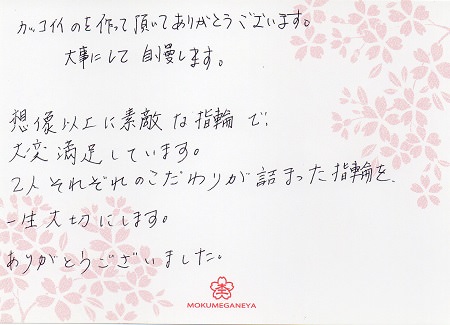 カッコイイのを作って頂いてありがとうございます。
大事にして自慢します。
想像以上に素敵な指輪で、
大変満足しています。
2人それぞれのこだわりが詰まった指輪を
一生大切にします。
ありがとうございました。
MOKUMEGANEYA